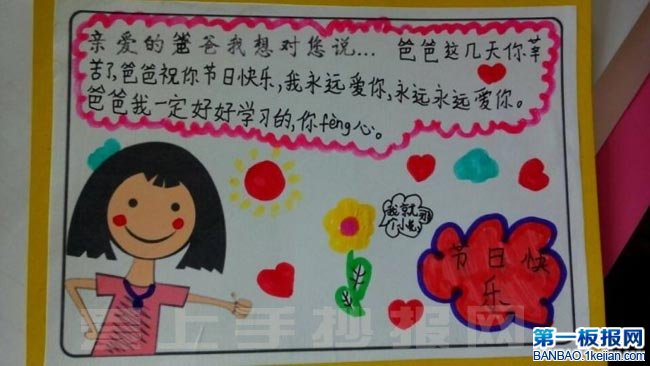 亲爱的爸爸我想对您说... 爸爸这几天你辛
苦了,爸爸祝你节日快乐,我永远爱你,永远永远爱你。
爸爸我一定好好学习的,你fèng心。
我就
个小
节日快
乐
爱上手抄报网
第一板报网
BANBAO.1kejian.com